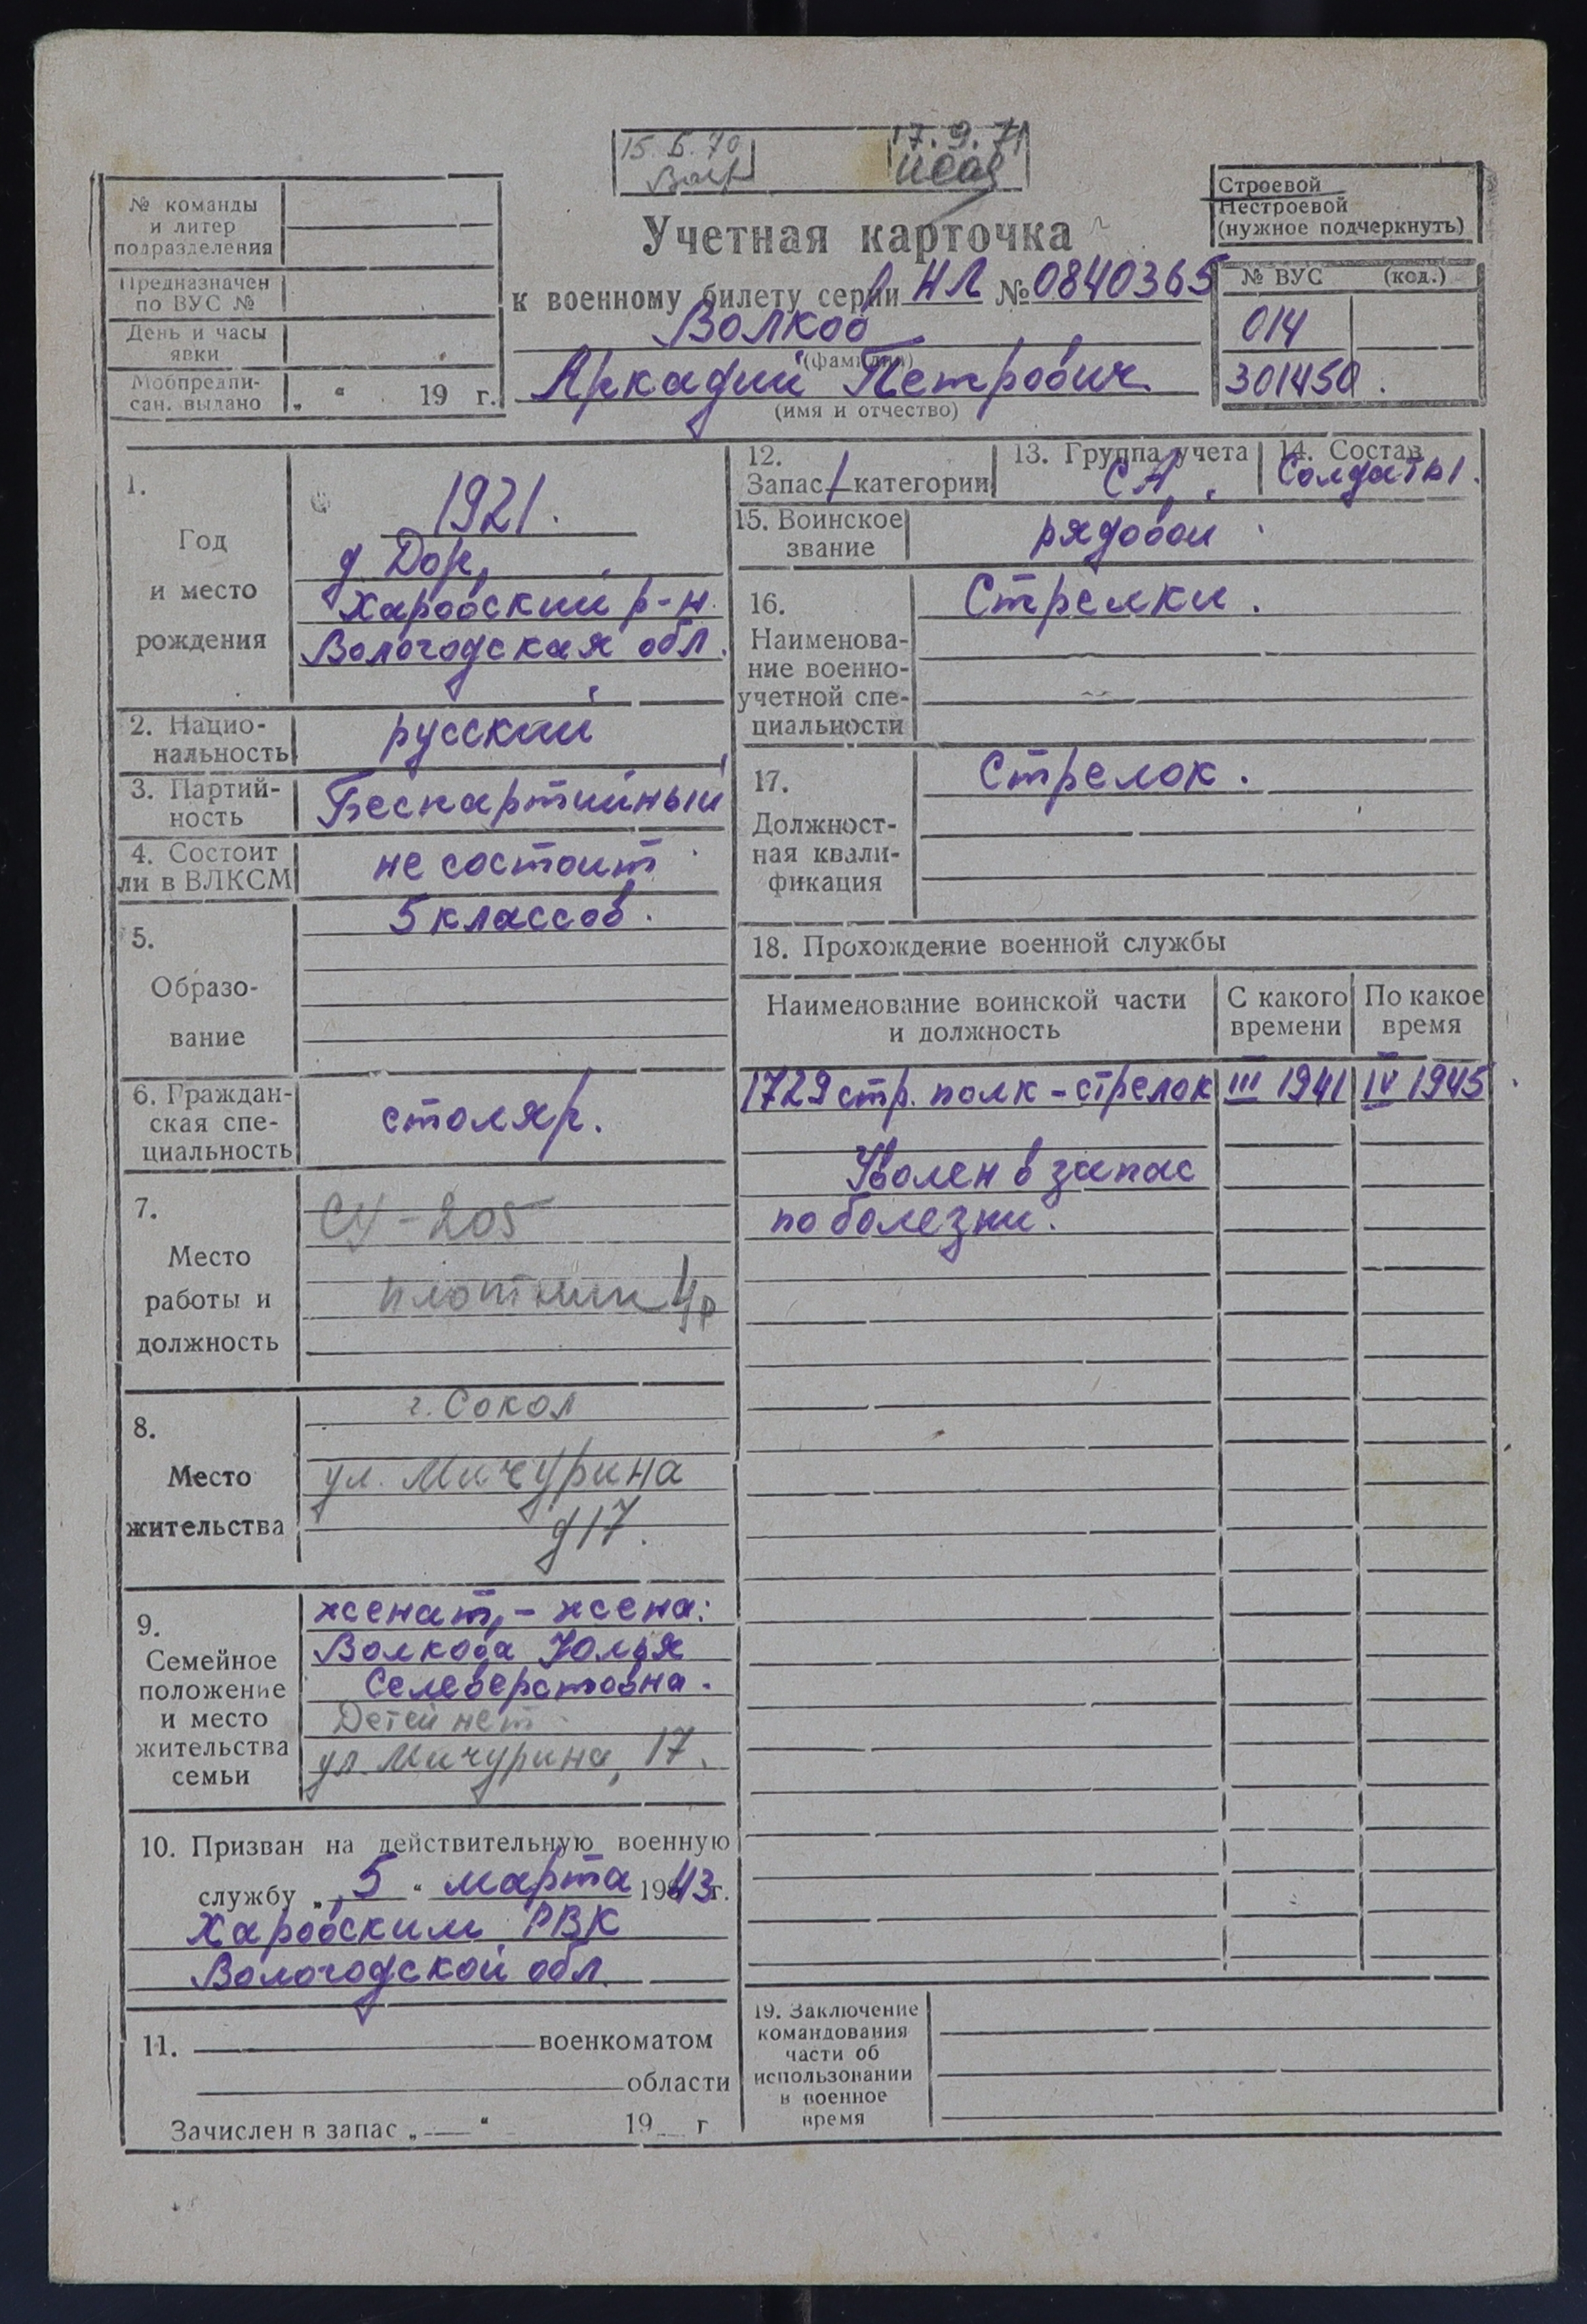 15. 5. 70
17. 9. 71
№ команды
и литер
подразделения
Предназначен
по ВУС №
День и часы
явки
Мобпредпи-
сан. выдано „ “ 19 г.
Строевой
Нестроевой
(нужное подчеркнуть)
Учетная карточка
к военному билету серии НЛ № 0840365
Волков
(фамилия)
Аркадий Петрович
(имя и отчество)
№ ВУС (код.)
014
301450.
1.
Год
и место
рождения
1921.
д. Дор,
Харовский р-н.
Вологодская обл.
2. Нацио-
нальность
русский
3. Партий-
ность
Беспартийный
4. Состоит
ли в ВЛКСМ
не состоит
5.
Образо-
вание
5 классов.
6. Граждан-
ская спе-
циальность
столяр.
7.
Место
работы и
должность
СУ-205
плотник 4р
8.
Место
жительства
г. Сокол
ул. Мичурина
д 17.
9.
Семейное
положение
и место
жительства
семьи
женат, - жена:
Волкова Юлья
Селеверстовна.
Детей нет
ул. Мичурина, 17.
10. Призван на действительную военную
службу „ 5 “ марта 1943 г.
Харовским РВК
Вологодской обл.
11. военкоматом
области
Зачислен в запас „ “ 19 г
12.
Запас 1 категории
13. Группа учета
СА.
14. Состав
Солдаты.
15. Воинское
звание
рядовой
16.
Наименова-
ние военно-
учетной спе-
циальности
Стрелки.
17.
Должност-
ная квали-
фикация
Стрелок.
18. Прохождение военной службы
Наименование воинской части
и должность
С какого
времени
По какое
время
1729 стр. полк - стрелок III 1941 IV 1945
Уволен в запас
по болезни.
19. Заключение
командования
части об
использовании
в военное
время